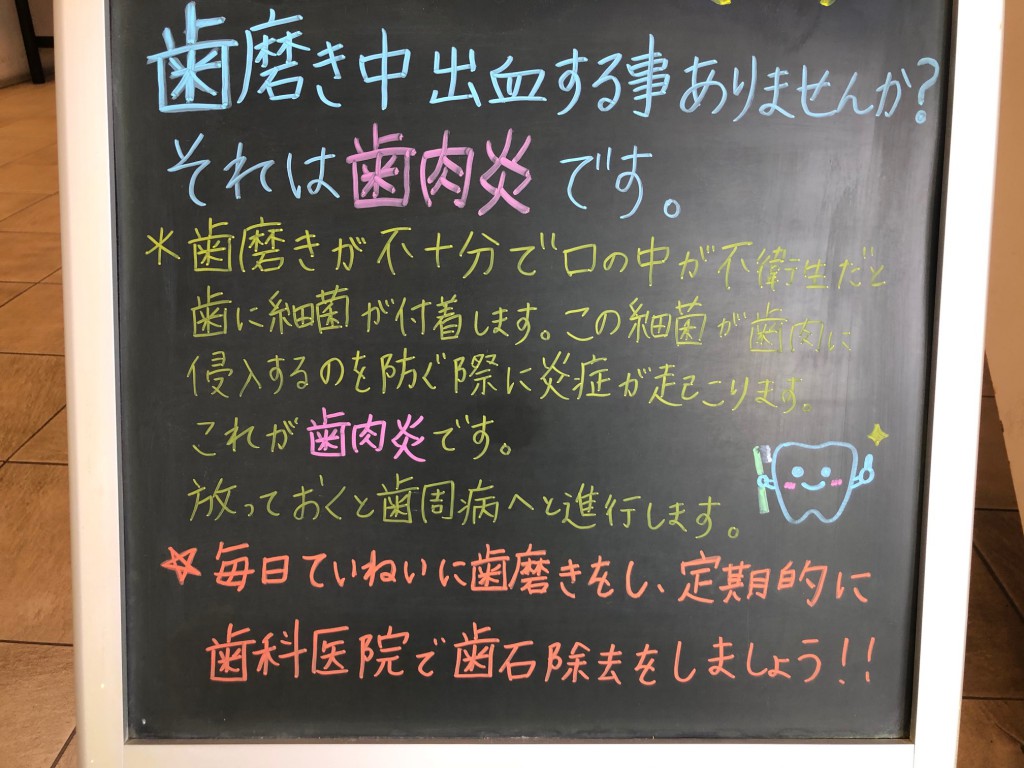 歯磨き中出血する事ありませんか?
それは歯肉炎です。
*歯磨きが不十分で口の中が不衛生だと
歯に細菌が付着します。この細菌が歯肉に
侵入するのを防ぐ際に炎症が起こります。
これが歯肉炎です。
放っておくと歯周病へと進行します。
☆毎日ていねいに歯磨きをし、定期的に
歯科医院で歯石除去をしましょう!!